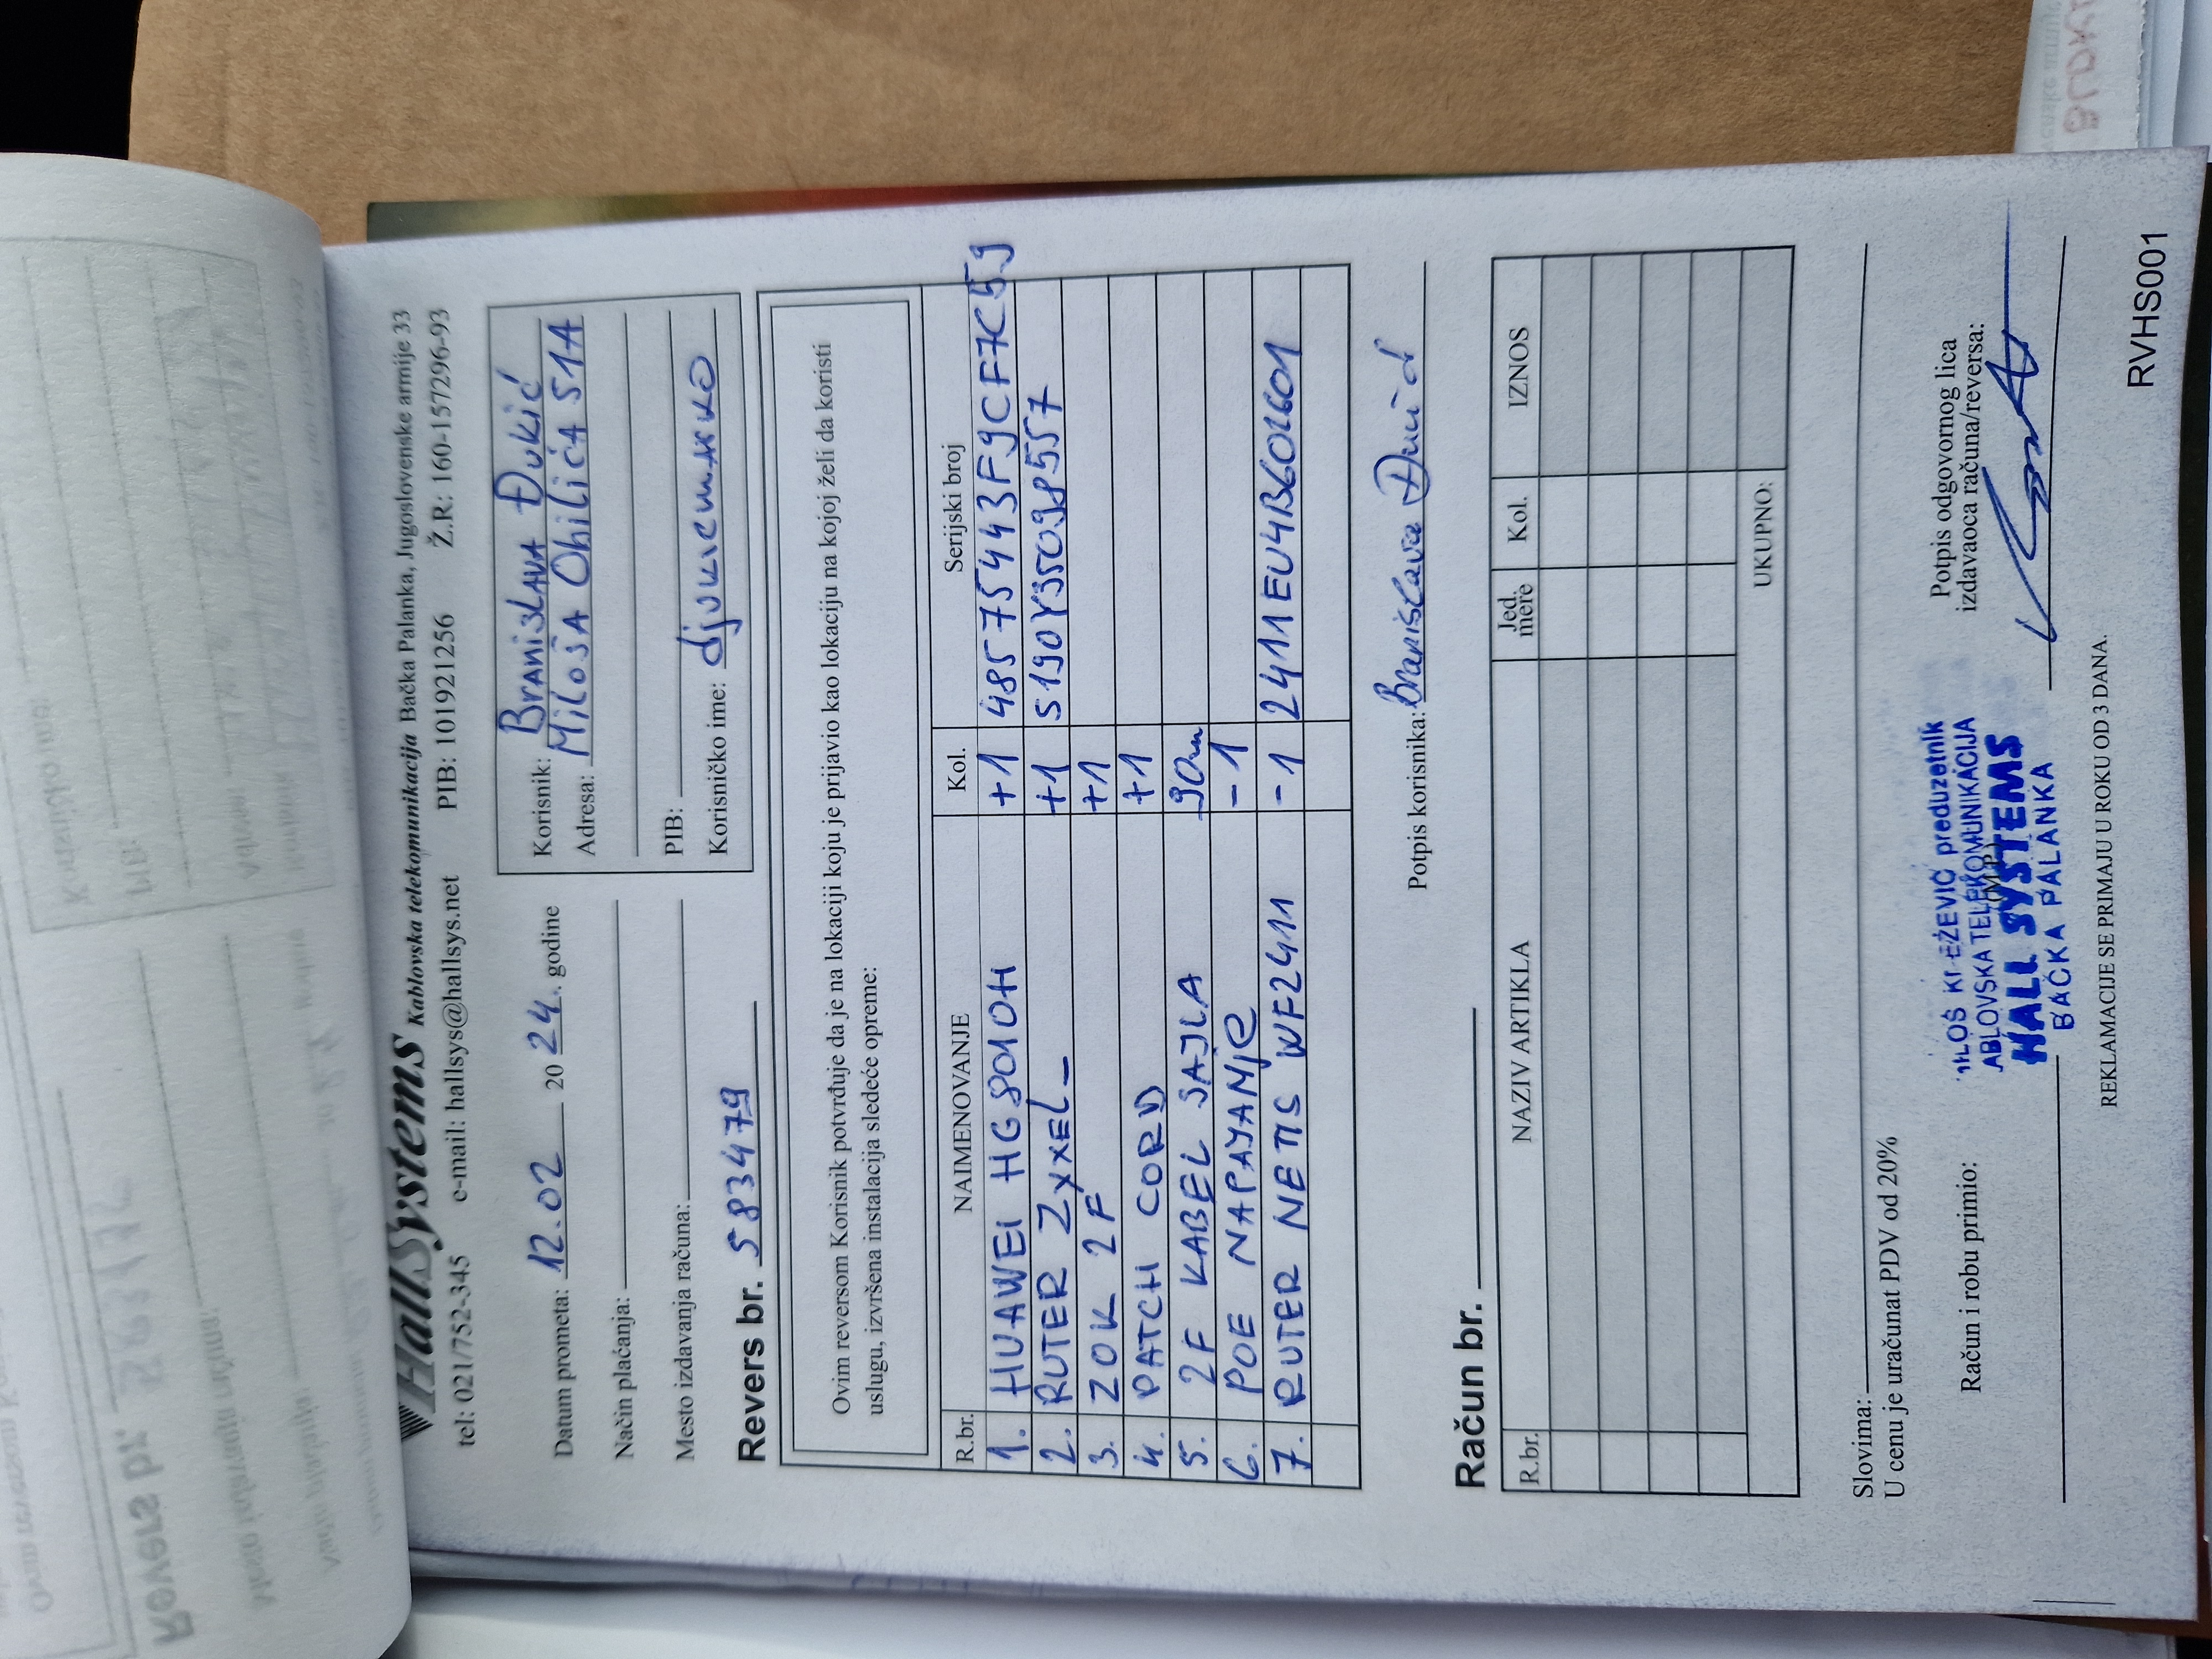 HallSystems Kablovska telekomunikacija Bačka Palanka, Jugoslovenske armije 33
tel: 021/752-345 e-mail: hallsys@hallsys.net PIB: 101921256 Ž.R: 160-157296-93
Datum prometa: 12.02 20 24. godine
Način plaćanja:
Mesto izdavanja računa:
Korisnik: BRANISLAVA ĐUKIĆ
Adresa: MILOŠA OBILIĆA 51A
PIB:
Korisničko ime:
Revers br. 583479
Ovim reversom Korisnik potvrđuje da je na lokaciji koju je prijavio kao lokaciju na kojoj želi da koristi
uslugu, izvršena instalacija sledeće opreme:
R.br. NAIMENOVANJE Kol. Serijski broj
1. HUAWEI HG8010H +1 48575443F9CF7C59
2. RUTER ZYXEL +1 S190Y35098557
3. ZOK 2F +1
4. PATCH CORD +1
5. 2F KABEL SAJLA 90m
6. POE NAPAJANJE -1
7. RUTER NETIS WF2411 -1 2411EU4B6021601
Potpis korisnika: Branislava
Račun br.
R.br. NAZIV ARTIKLA Jed. mere Kol. IZNOS
UKUPNO:
Slovima:
U cenu je uračunat PDV od 20%
Račun i robu primio:
(M.P.)
Potpis odgovornog lica
izdavaoca računa/reversa:
preduzetnik
ABLOVSKA TELEKOMUNIKACIJA
HALL SYSTEMS
BAČKA PALANKA
REKLAMACIJE SE PRIMAJU U ROKU OD 3 DANA.
RVHS001